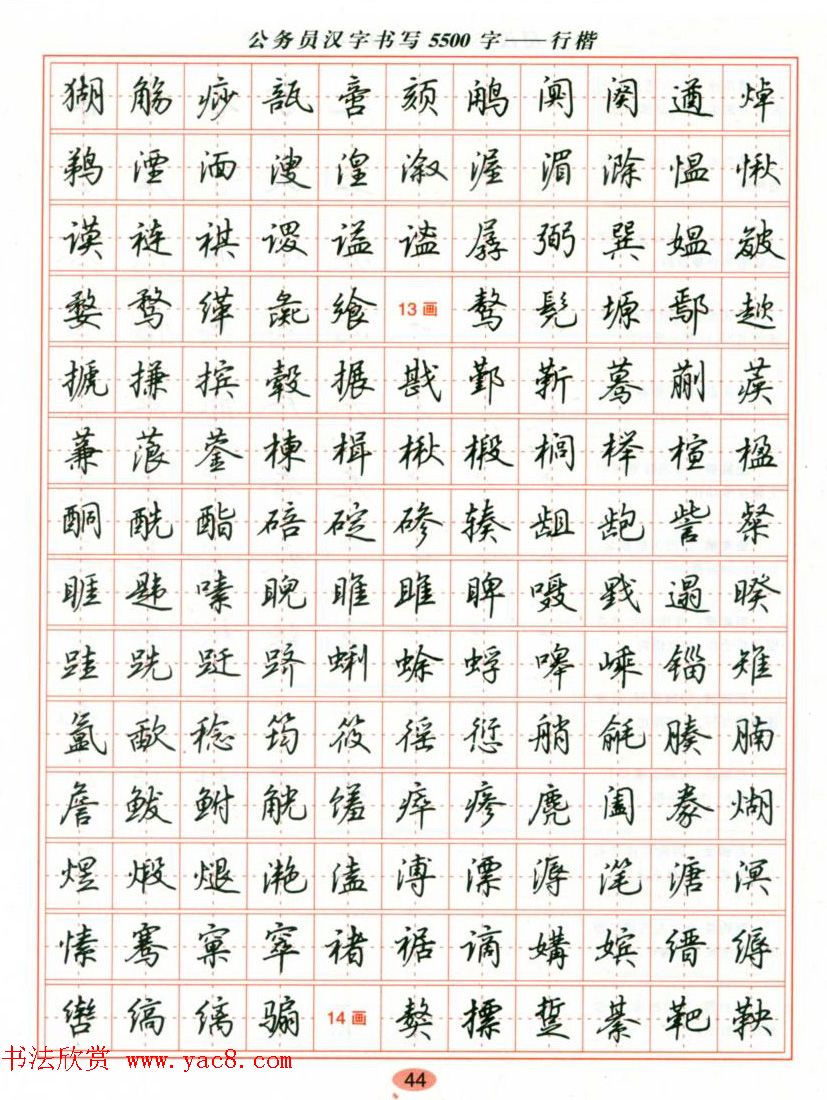 公务员汉字书写5500字——行楷
猢 觞 痧 瓿 啻 颏 鹇 阒 阕 遒 焯
鹈 湮 湎 溲 湟 溆 渥 湄 滁 愠 愀
谟 裢 祺 谡 谥 谧 孱 弼 巽 媪 皴
婺 骛 缂 彘 飨 13画 鹜 髡 塬 鄢 趑
摅 搛 摈 毂 搌 戡 鄞 靳 蓦 蒯 蒺
蒹 蒗 蓥 楝 楫 楸 椴 榈 榉 楦 楹
酮 酰 酯 碚 碇 碜 辏 龃 龅 訾 粲
睚 韪 嗪 睨 睢 雎 睥 嗫 戥 遢 暌
跬 跣 跹 跻 蜊 蜍 蜉 嗥 嵊 锱 雉
氲 歃 稔 筠 筱 徭 愆 艄 毹 腠 腩
詹 鲅 鲋 觥 馐 瘁 瘆 麂 阖 豢 煳
煜 煅 煺 滟 溘 溥 溧 溽 滗 溏 溟
愫 骞 窠 窣 褚 裾 谪 媾 嫔 缙 缛
辔 缟 缡 骟 14画 獒 摽 踅 綦 靶 鞅
书法欣赏 www.yac8.com
44